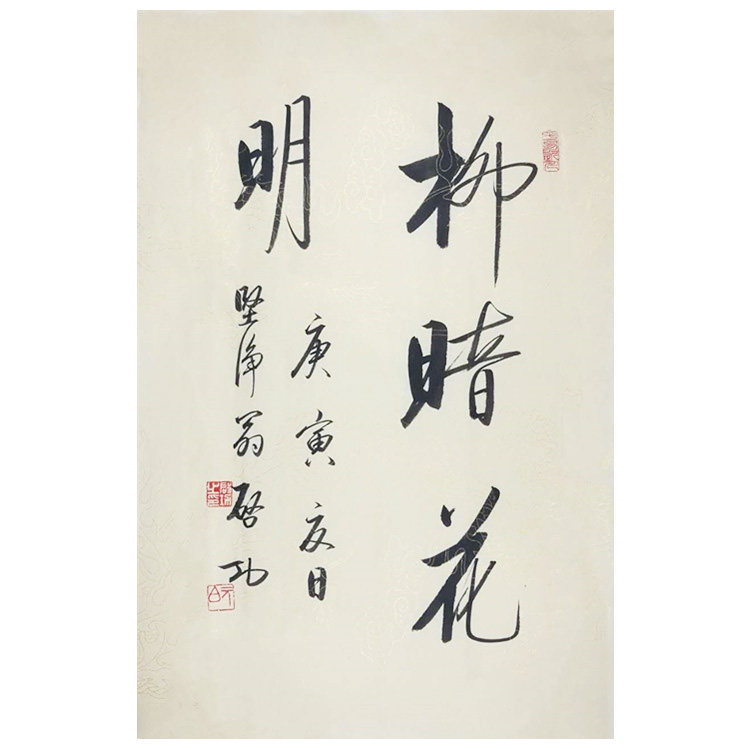 柳暗花
明
庚寅夏日
坚净翁启功